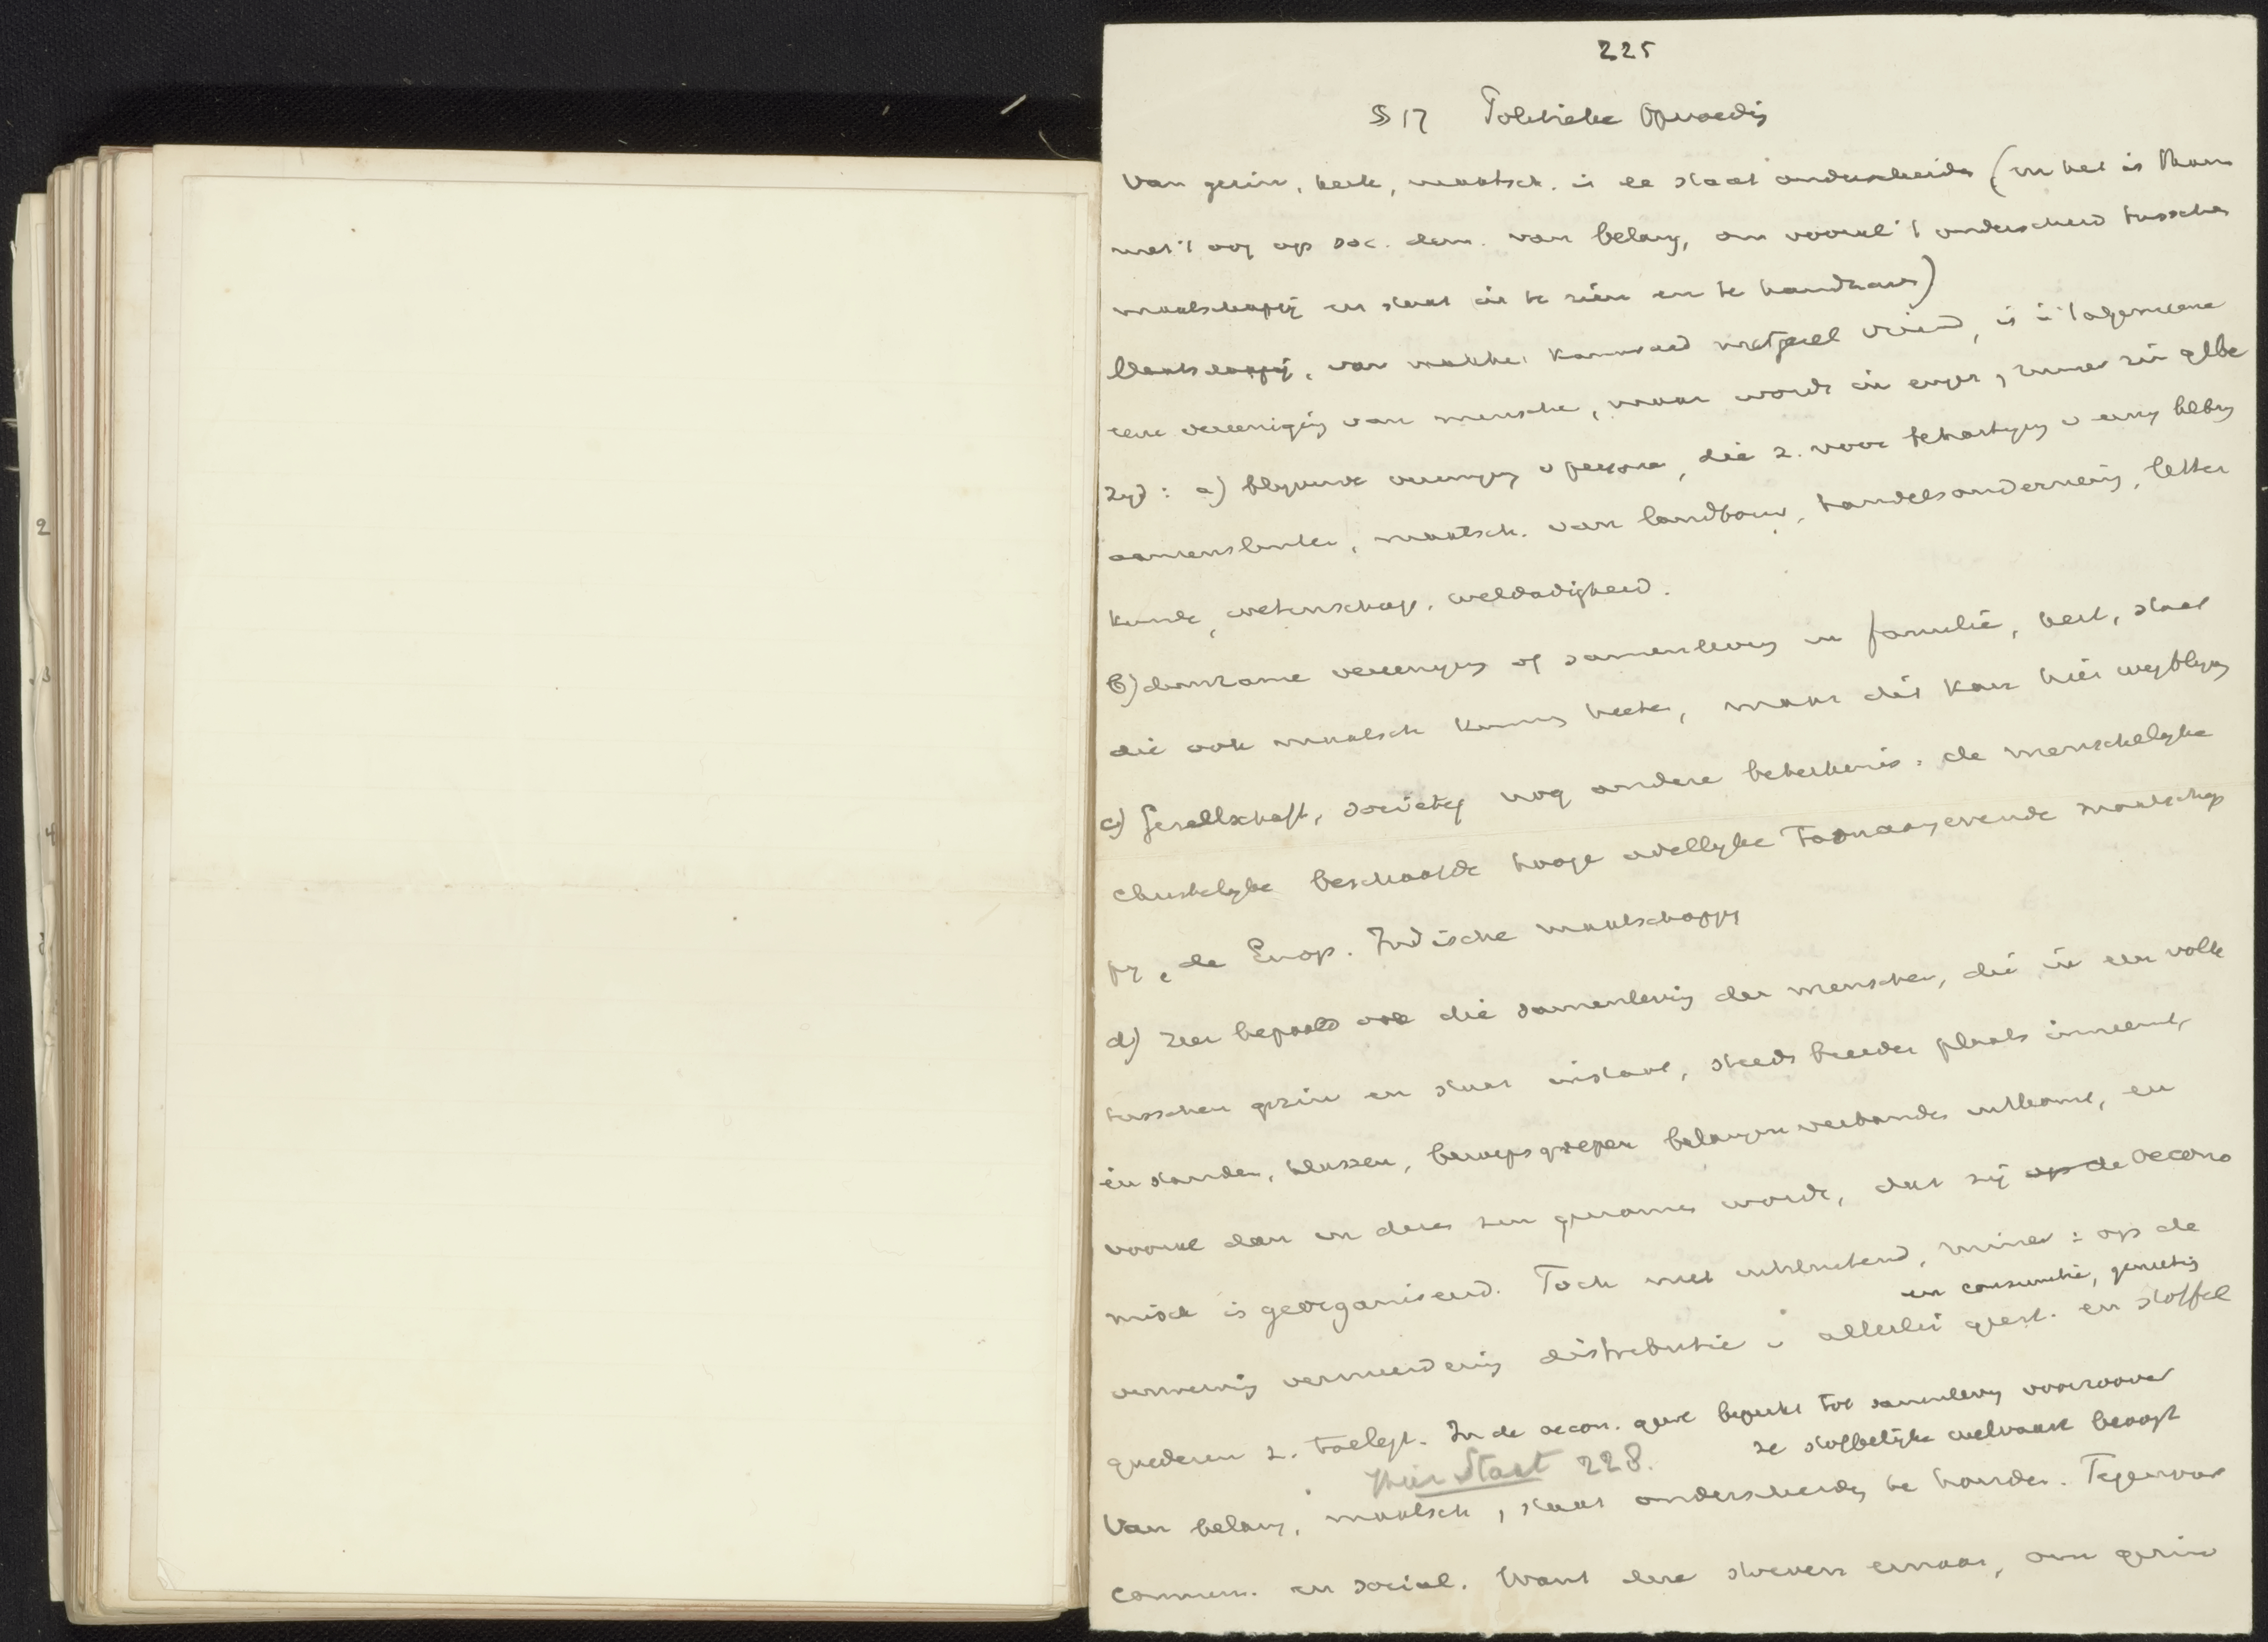 225
§ 17 Politieke Opvoedig
Van gezin, kerk, maatsch. is de staat onderscheiden (en het is thans
met 't oog op soc. dem. van belang, om vooral 't onderscheid tusschen
maatschappij en staat in te zien en te handhaven)
Maatschappij, van makker kameraad metgezel vriend, is in 't algemeene
eene vereeniging van menschen, maar wordt in enger, ruimer zin gebe
zigd: a) blijvende vereenigg v personen, die z. voor behartiging v eenig belang
aaneensluiten, maatsch. van landbouw, handelsondernemig, letter
kunde, wetenschap, weldadigheid.
b) duurzame vereenigg of samenlevg in familie, kerk, staat
die ook maatsch kunnen heeten, maar dit kan hier wegblijven
c) Gesellschaft, society nog andere beteekenis: de menschelijke
christelijke beschaafde hooge adellijke toonaangevende maatschap
pij, de Europ. Indische maatschappij
d) zeer bepaald die samenlevig der menschen, die in een volk
tusschen gezin en staat instaat, steeds breeder plaats inneemt,
in standen, klassen, beroepsgroepen belangenverbanden uitkomt, en
vooral dan in dezen zin genomen wordt, dat zij op de oecono
misch is georganiseerd. Toch niet uitsluitend, immers: op de
en consumtie, genietig
verwervig vermeerderig distributie v allerlei geest. en stoffel
goederen z. toelegt. In de oecon. zin beperkt tot samenlevg voorzoover
ze stoffelijke welvaart beoogt
Hier Staat 228.
Van belang, maatsch, staat onderscheiden te houden. Tegenover
commun. en social. Want deze streven ernaar, om gezin